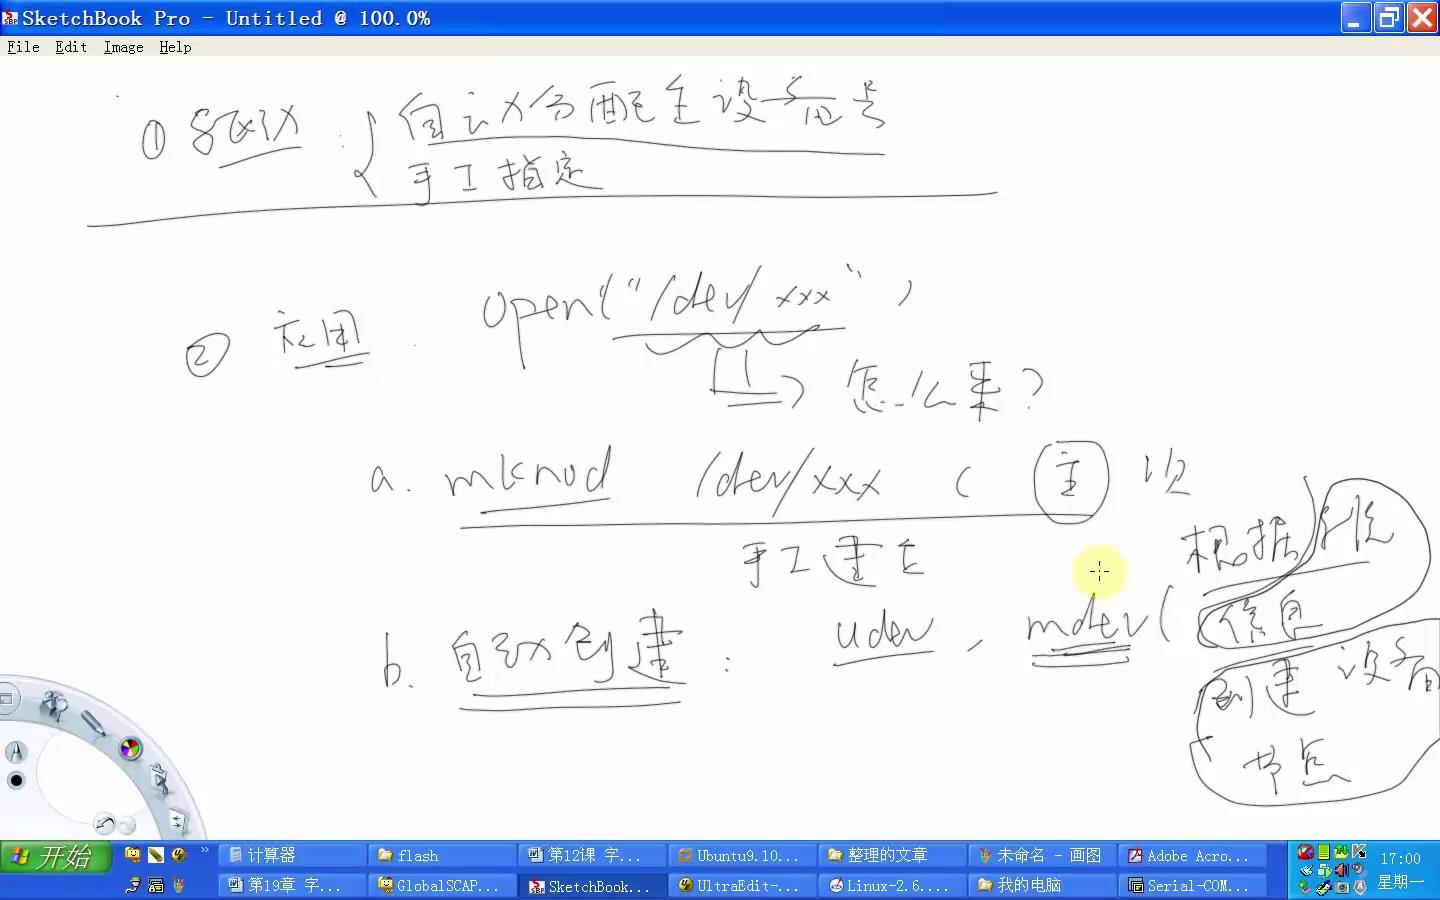 SketchBook Pro - Untitled @ 100.0%
File Edit Image Help
① 驱动：自动分配主设备号
手工指定
② 应用 open("/dev/xxx",
怎么来?
a. mknod /dev/xxx c 主 次
手工建立
b. 自动创建: udev, mdev(根据系统
信息
创建设备
节点
开始
计算器
flash
第12课 字...
Ubuntu9.10...
整理的文章
未命名 - 画图
Adobe Acro...
17:00
第19章 字...
GlobalSCAP...
SketchBook...
UltraEdit-...
Linux-2.6....
我的电脑
Serial-COM...
星期一